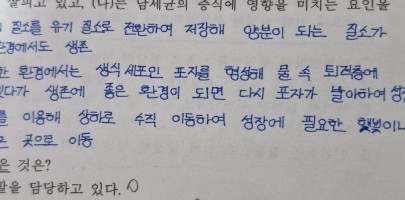 살펴고 있고, (나)는 남세균의 증식에 영향을 미치는 요인을
질소를 유기 질소로 전환하여 저장해 양분이 되는 질소가
환경에서도 생존
한 환경에서는 생식세포인 포자를 형성해 물 속 퇴적층에
있다가 생존에 좋은 환경이 되면 다시 포자가 발아하여 성장
를 이용해 상하로 수직 이동하여 성장에 필요한 햇빛이나
은 곳으로 이동
은 것은?
할을 담당하고 있다.